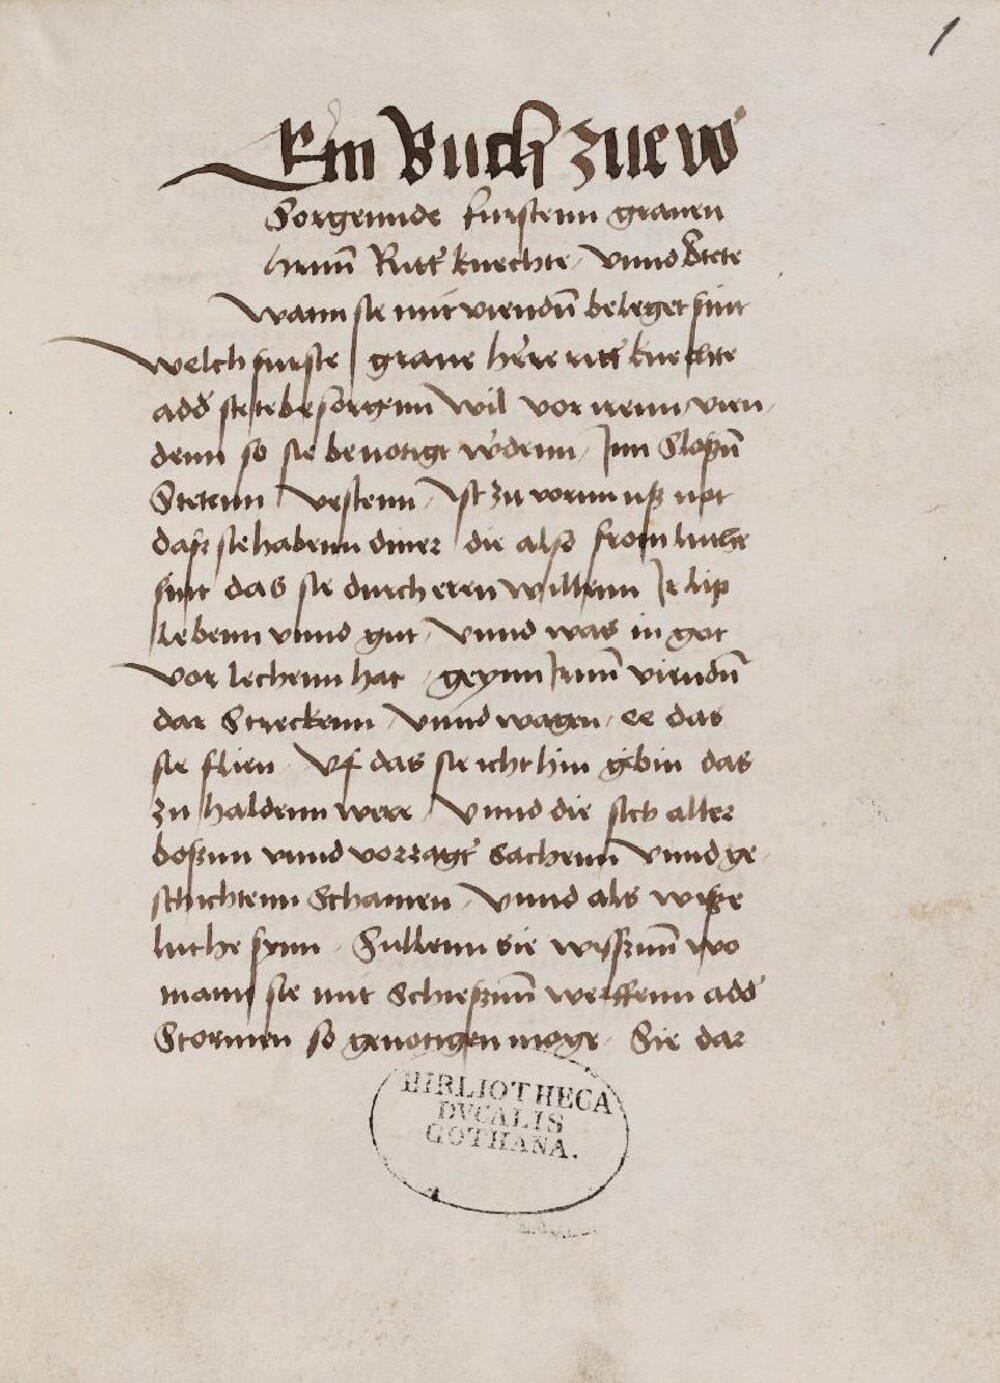 1
Ein Buch zuew
Sorgennde furstenn grauen
hrnn̄ Ritt' knechte / vnnd Stete
wann sie mit viendn̄ beleget sint
Welch furste / graue here ritt' knechte
add' stete besorgenn wil vor iren vien /
denn so sie benotigt w'denn / Inn Sloßn̄
Stetenn / vestenn / Ist zu vornn uß not
daß sie habenn diner die also from luthe
sint das sie durch eren willenn Ir lip
lebenn vnnd gut / vnnd was in got
vor lechenn hat / geynn Irnn̄ viendn̄
dar Streckenn / vnnd wagen / ee das
sie flien / Vf das sie icht hin gebin das
zu haldenn were / vnnd die sich aller
boßnn vnnd vorzagt' sachenn vnnd ge /
schichtenn Schamen / vnnd als wiße
luthe synn / Sullenn sie wissznn̄ wo
mann sie mit Schießnn̄ werffenn add'
Stormen so genotigen moge / Sie dar
BIBLIOTHECA
DVCALIS
GOTHANA.